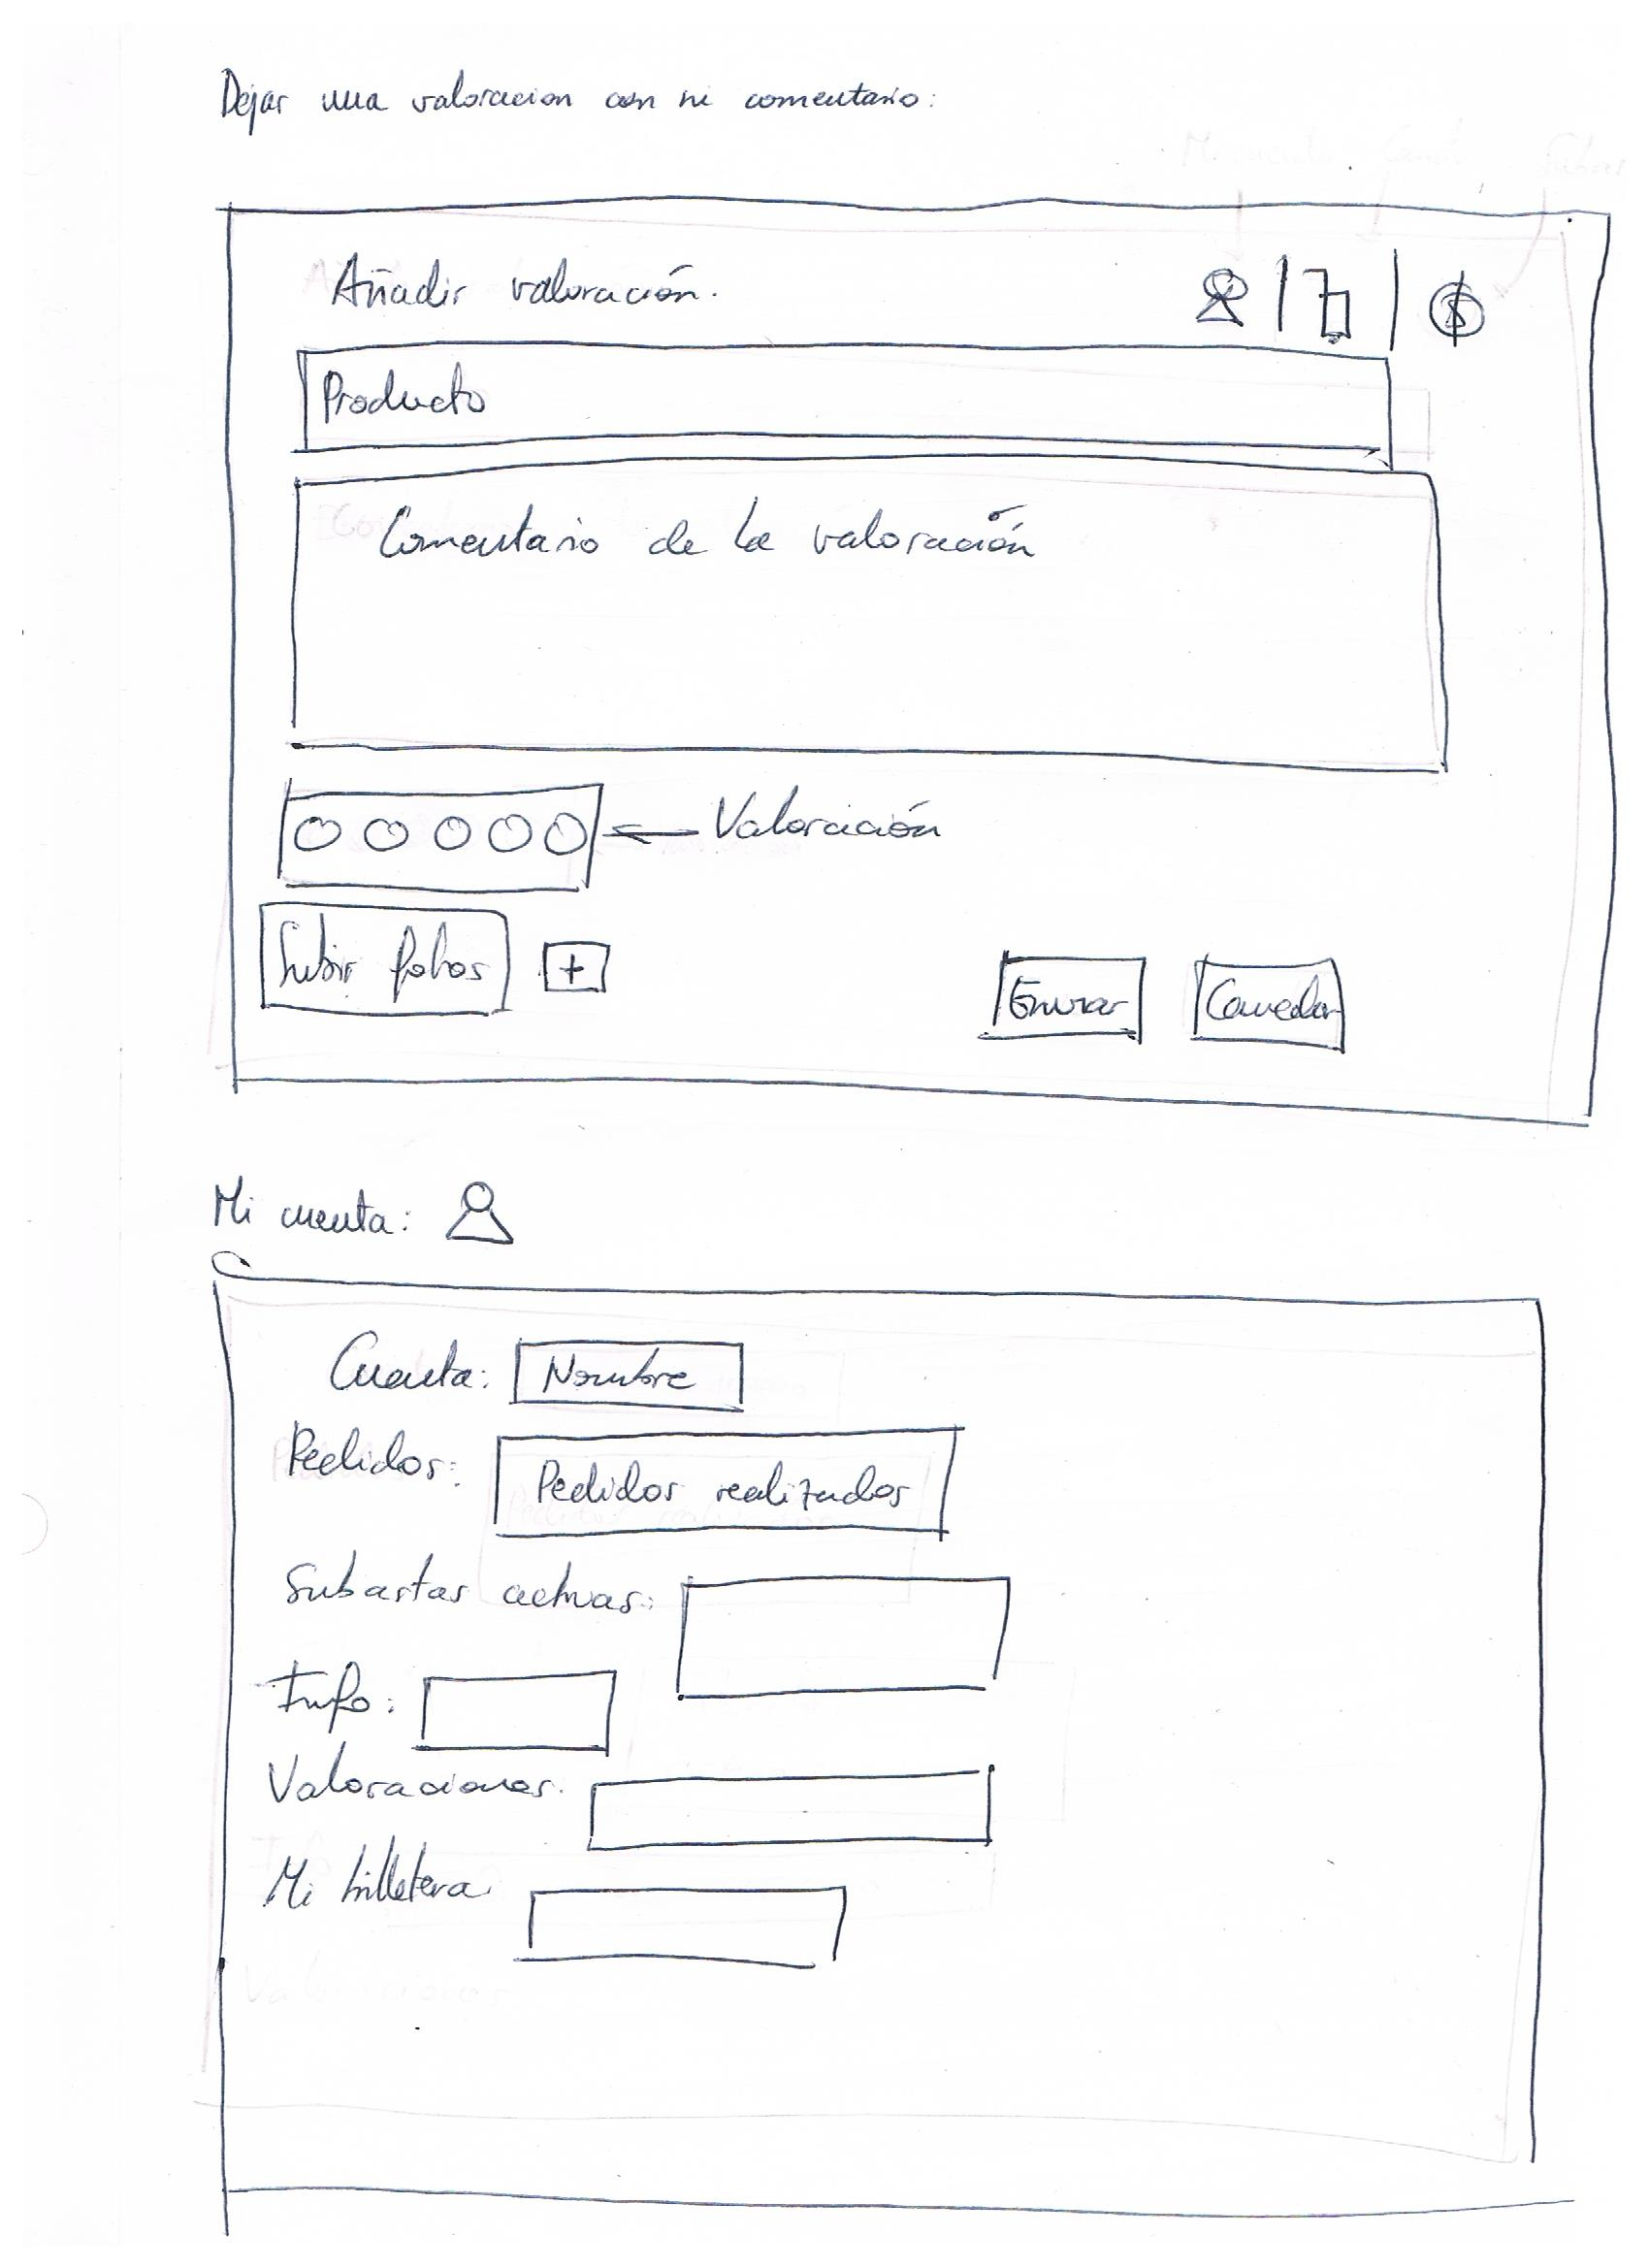 Dejar una valoracion con mi comentario:
Añadir valoración.
$
Producto
Comentario de la valoración
Valoración
Subir fotos +
Enviar Cancelar
Mi cuenta:
Cuenta: Nombre
Pedidos: Pedidos realizados
Subastas activas:
Info:
Valoraciones:
Mi billetera